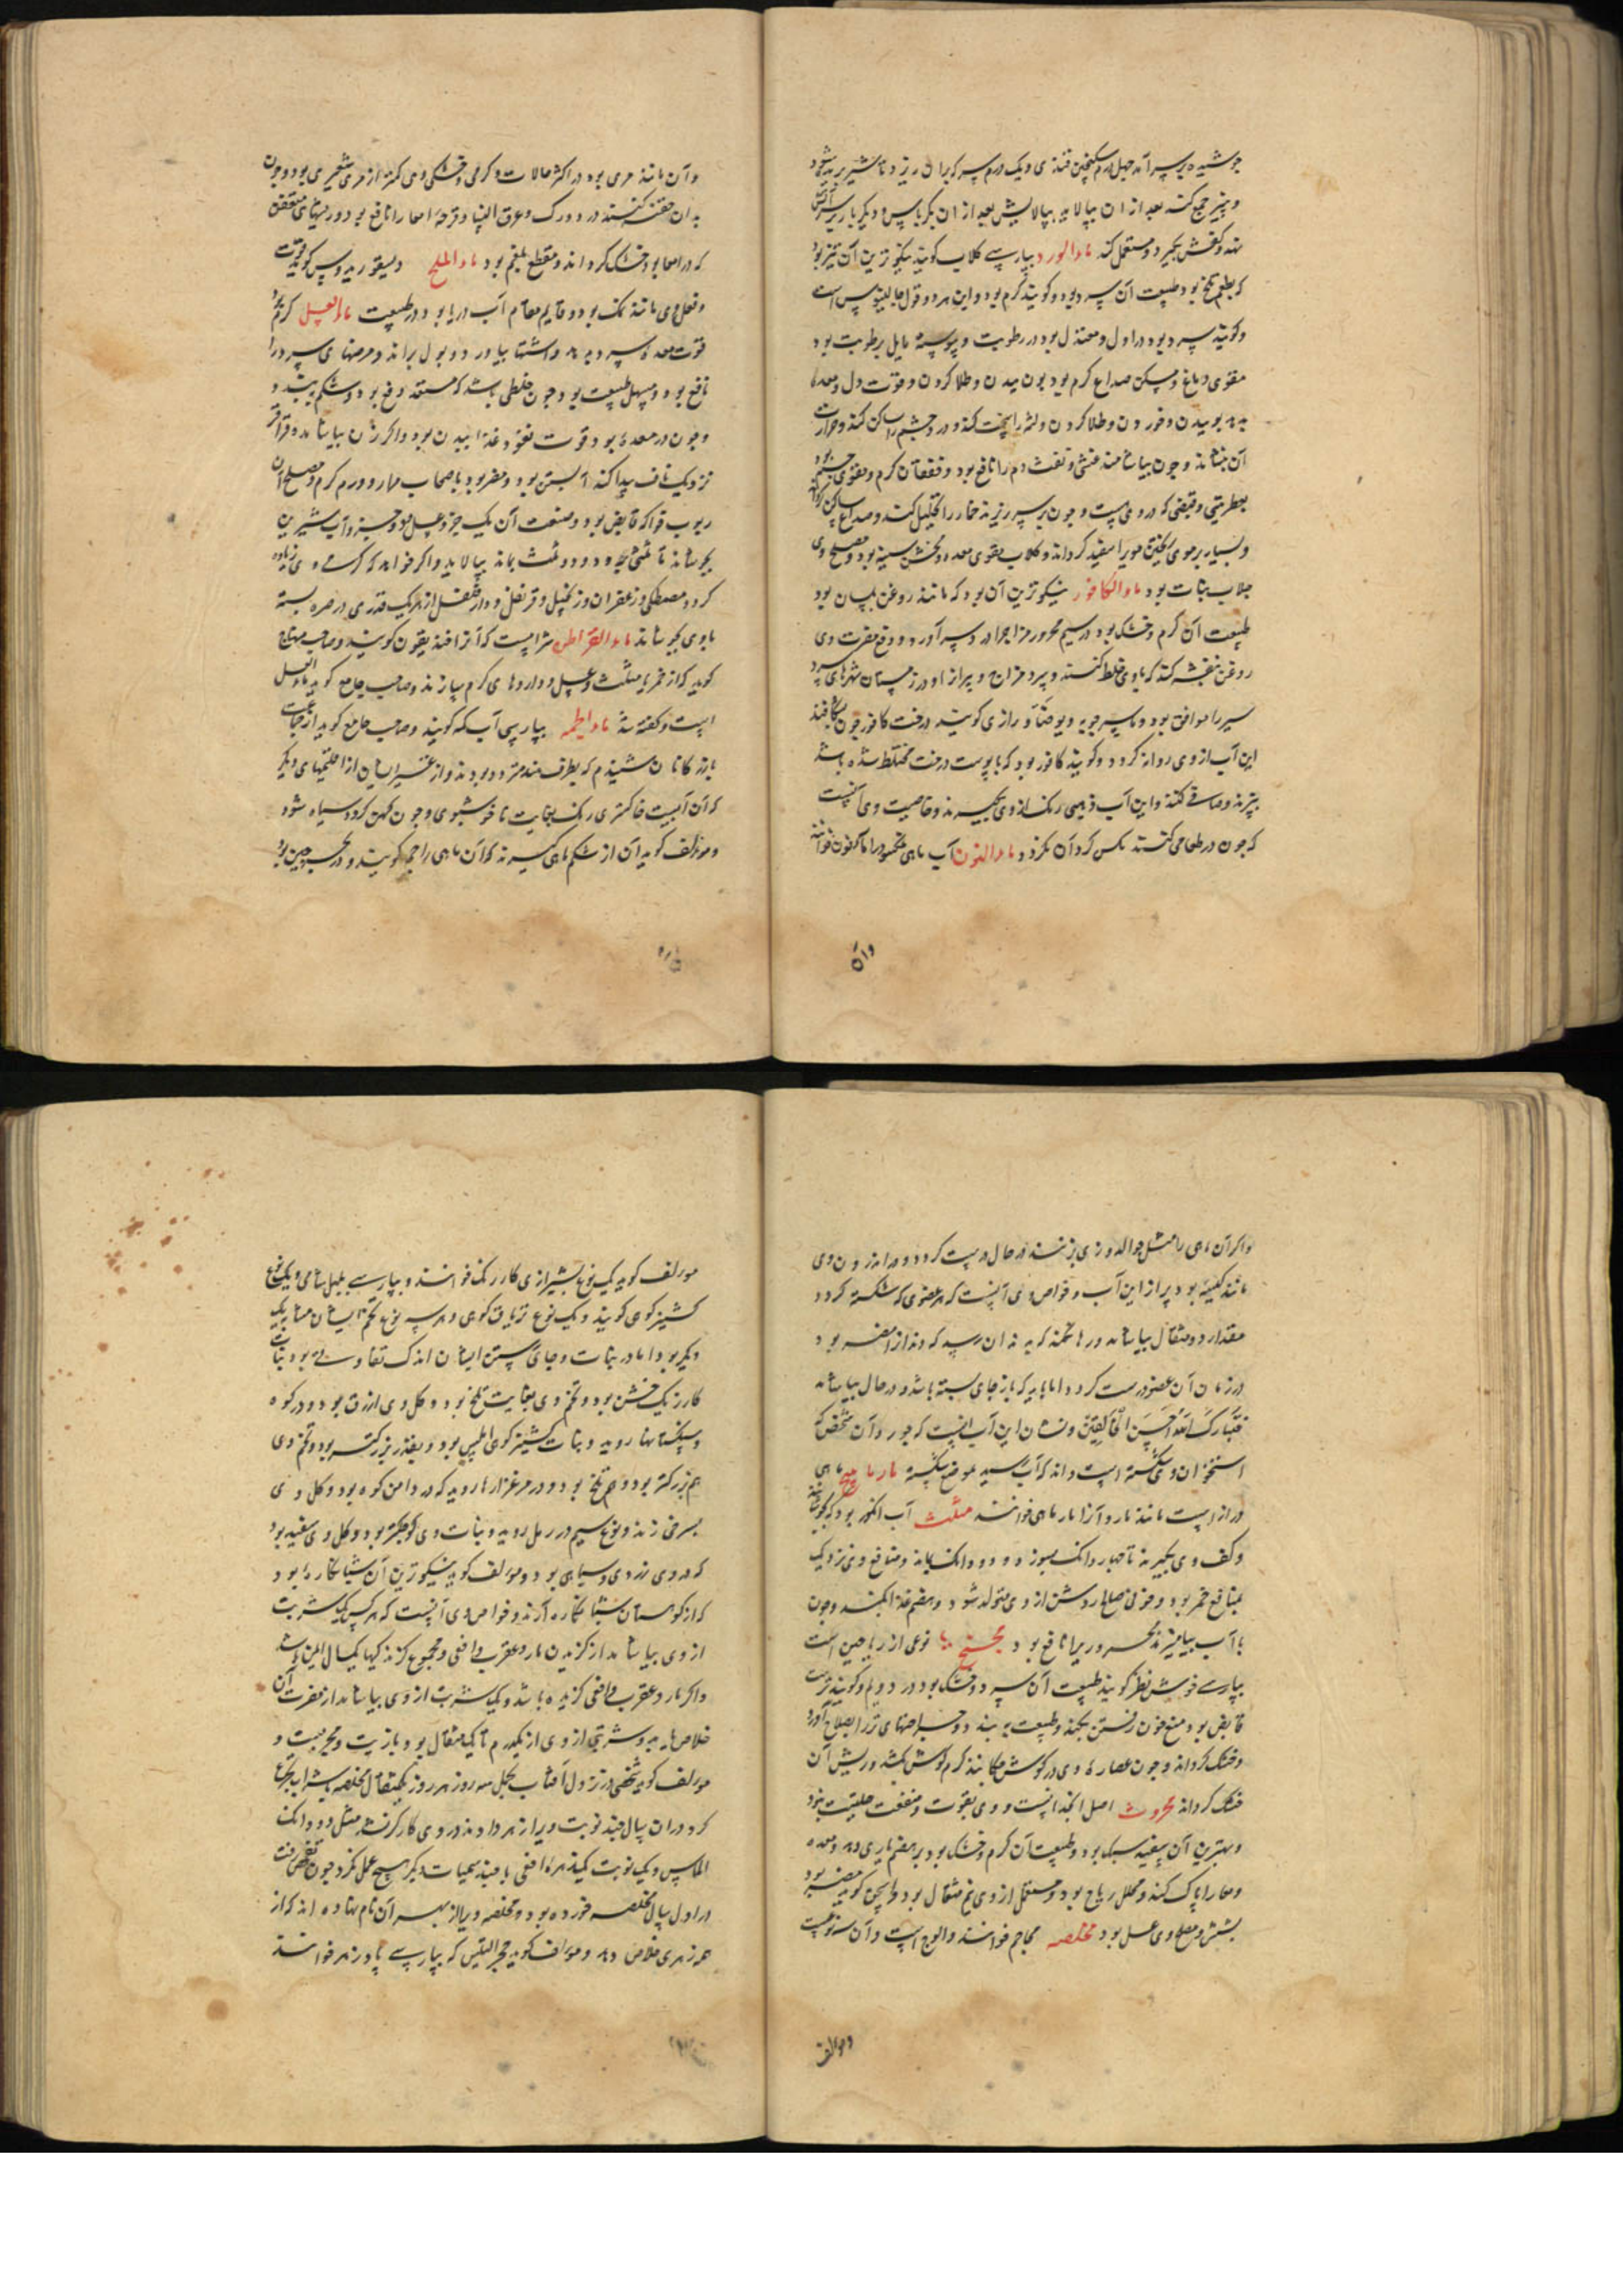 جوشیده بر سر آن چهل درم سکنجبین قندی و یک درم سرکه بران ریزد تا شیر بریده شود
و پنیر جمع کند بعد از ان بپالاید بپالایش بعد از ان بکرباس و دیگر بار بر سر آتش
نهد و کفش بگیرد و مستعمل کند ماء الورد بپارسی گلاب گویند نیکوترین آن تیزبو
که بطعم تلخ بود طبیعت آن سرد بود و گویند گرم بود و این هر دو قول جالینوس است
و گویند سرد بود در اول و معتدل بود در رطوبت و یبوسة مایل برطوبت بود
مقوی دماغ و مسکن صداع گرم بود بوییدن و طلا کردن و قوت دل و معده
بدهد بوییدن و خوردن و طلا کردن و لثه را سخت کند و درد چشم را ساکن کند و حرارت
آن بنشاند و چون بیاشامند غشی و نفث دم را نافع بود و خفقان گرم و مقوی جسم بود
بعطریتی و قبضی که در وی هست و چون بر سر ریزند خمار را تحلیل کند و صداع ساکن گرداند
و بسیار بر موی ریختن موی را سفید گرداند و گلاب مقوی معده و مخشن سینه بود و مصلح وی
جلاب نبات بود ماء الکافور نیکوترین آن بود که مانند روغن بلسان بود
طبیعت آن گرم و خشک بود در سیم محرور مزاج را درد سر آورد و دفع مضرت وی
روغن بنفشه کند که با وی خلط کنند و سرد مزاج و پیران را در زمستان شهرهای سرد
سیر را موافق بود و ماسرجویه و یوحنا و رازی گویند درخت کافور چون بشکافند
این آب از وی روانه گردد و گویند کافور بود که با پوست درخت مختلط شده باشد
بپزند و صافی کنند و این آب ذهبی رنگ از وی بگیرند و خاصیت وی آنست
که چون در طعامی کنند مگس گرد آن نگردد ماء النون آب ماهی نمکسود را ماء النون خوانند
و آن
و آن مانند مری بود در اکثر حالات و گرمی و خشکی وی کمتر از مری شعیری بود و چون
بدان حقنه کنند درد ورک و عرق النسا و قرحهٔ امعا را نافع بود و ریشهای متعفن
که در امعا بود خشک گرداند و مقطع بلغم بود ماء الملح دیسقوریدوس گوید قوت
و فعل وی مانند نمک بود و قایم مقام آب دریا بود در طبیعت ماء العسل گرم بود
قوت معده سرد بدهد و اشتها بیاورد و بول براند و مرضهای سرد را
نافع بود و مسهل طبیعت بود چون خلطی باشد که مستعد دفع بود و شکم ببندد
و چون در معده بود قوت نفوذ غذا بدان بود و اگر زن بیاشامد و قراقر
نزدیک ناف پیدا کند آبستن بود و مضر بود باصحاب صفرا و ورم گرم و مصلح آن
ربوب فواکه قابض بود و صنعت آن یک جزو عسل بود و جزو آب شیرین
بجوشاند تا ثلثی برود و دو ثلث بماند بپالاید و اگر خواهد که گرمی وی زیاده
گردد مصطکی و زعفران و زنجبیل و قرنفل و دار فلفل از هر یک قدری در صره بسته
با وی بجوشاند ماء القراطن شرابیست که آنرا خندیقون گویند و صاحب منهاج
گوید که از خمر یا مثلث و عسل و داروهای گرم سازند و صاحب جامع گوید ماء العسل
است و گفته شد ماء الجمه بپارسی آب کمه گویند و صاحب جامع گوید از جماعت
بازرگانان شنیدم که بطرف هند متردد بودند و از غیر ایشان از اقلیمهای دیگر
که آن آبیست خاکستری رنگ بغایت ناخوشبوی و چون کهن گردد سیاه شود
و مولف گوید آن از شکم ماهی گیرند که آن ماهی را جمه گویند و در بحر چین بود
و اگر آن ماهی را مثل جوالدوزی بزنند در حال درست گردد و در اندرون وی
مانند کیسه بود پر از این آب و خواص وی آنست که هر عضوی که شکسته گردد
مقدار دو مثقال بیاشامد و رها نکند که بدندان رسد که دندان را مضر بود
در زمان آن عضو درست گردد اما باید که باز جای بسته باشد و در حال بیاشامد
فتبارک الله احسن الخالقین و نشان این آب آنست که چون در آن شخص که
استخوان وی شکسته است داند که آب رسید بموضع شکسته مارماهیج ماهی
دراز است مانند مار و آنرا مارماهی خوانند مثلث آب انگور بود که بجوشانند
و کف وی بگیرند تا چهار دانگ بسوزد و دو دانگ بماند و منافع وی نزدیک
بمنافع خمر بود و خونی صالح روشن از وی متولد شود و هضم غذا بکند و چون
با آب بیامیزند محرور را نافع بود مجنج بنا نوعی از ریاحین است
بپارسی خوش نظر گویند طبیعت آن سرد و خشک بود در دویم و گویند ترست
قابض بود و منع خون رفتن بکند و طبیعت ببندد و جراحتهای تر را بصلاح آورد
و خشک گرداند و چون عصاره وی در گوش چکانند کرم گوش بکشد و ریش آن
خشک گرداند محروث اصل انجدانست و وی بقوت و منفعت حلتیت بود
و بهترین آن سفید سبک بود و طبیعت آن گرم و خشک بود بر هضم یاری دهد و معده
و معا را پاک کند و محلل ریاح بود و مستعمل از وی نیم مثقال بود و اسحق گوید مضر بود
بشش و مصلح وی عسل بود مخلصه محاجم خوانند و الوج است و آن سه نوعست
و مولف
مولف گوید یک نوع بشیرازی کارزنک خوانند و بپارسی بلبل شامی و یک نوع
کشنیز کوهی گویند و یک نوع تریاق کوهی و هر سه نوع تخم ایشان مشابه یک
دیگر بود اما در نبات و جای رستن ایشان اندک تفاوتی بود نبات
کارزنک خشن بود و تخم وی بغایت تلخ بود و گل وی ازرق بود و در کوه
و سنگستانها روید و نبات کشنیز کوهی املس بود و بقدر بزرگتر بود و تخم وی
هم بزرگتر بود و هم تلخ بود و در مرغزارها روید که در دامن کوه بود و گل وی
بسرخی زند و نوع سیم در رمل روید و نبات وی کوچکتر بود و گل وی سفید بود
که در وی زردی و سیاهی بود و مولف گوید نیکوترین آن شبانکاره بود
که از کوهستان شبانکاره آرند و خواص وی آنست که هر کس یک شربت
از وی بیاشامد از گزیدن مار و عقرب و افعی و مجموع گزندگیها یکسال ایمن باشد
و اگر مار و عقرب و افعی گزیده باشد و یک شربت از وی بیاشامد از مضرت آن
خلاص یابد و شربتی از وی از یکدرم تا یک مثقال بود و با زیت و مجربست و
مولف گوید شخصی در نزول آفتاب بحمل سه روز هر روز یکمثقال مخلصه با شراب تجرع
کرد و در آن سال چند نوبت ویرا زهر دادند در وی کار گر نشد مثل دو دانگ
الماس و یک نوبت یکدرم زهره افعی با چند سمیات دیگر هیچ عمل نکرد چون تفحص رفت
در اول سال مخلصه خورده بود و مخلصه ویرا از بهر آن نام نهاده اند که از
همه زهری خلاص دهد و مولف گوید حجر التیس که بپارسی پادزهر خوانند